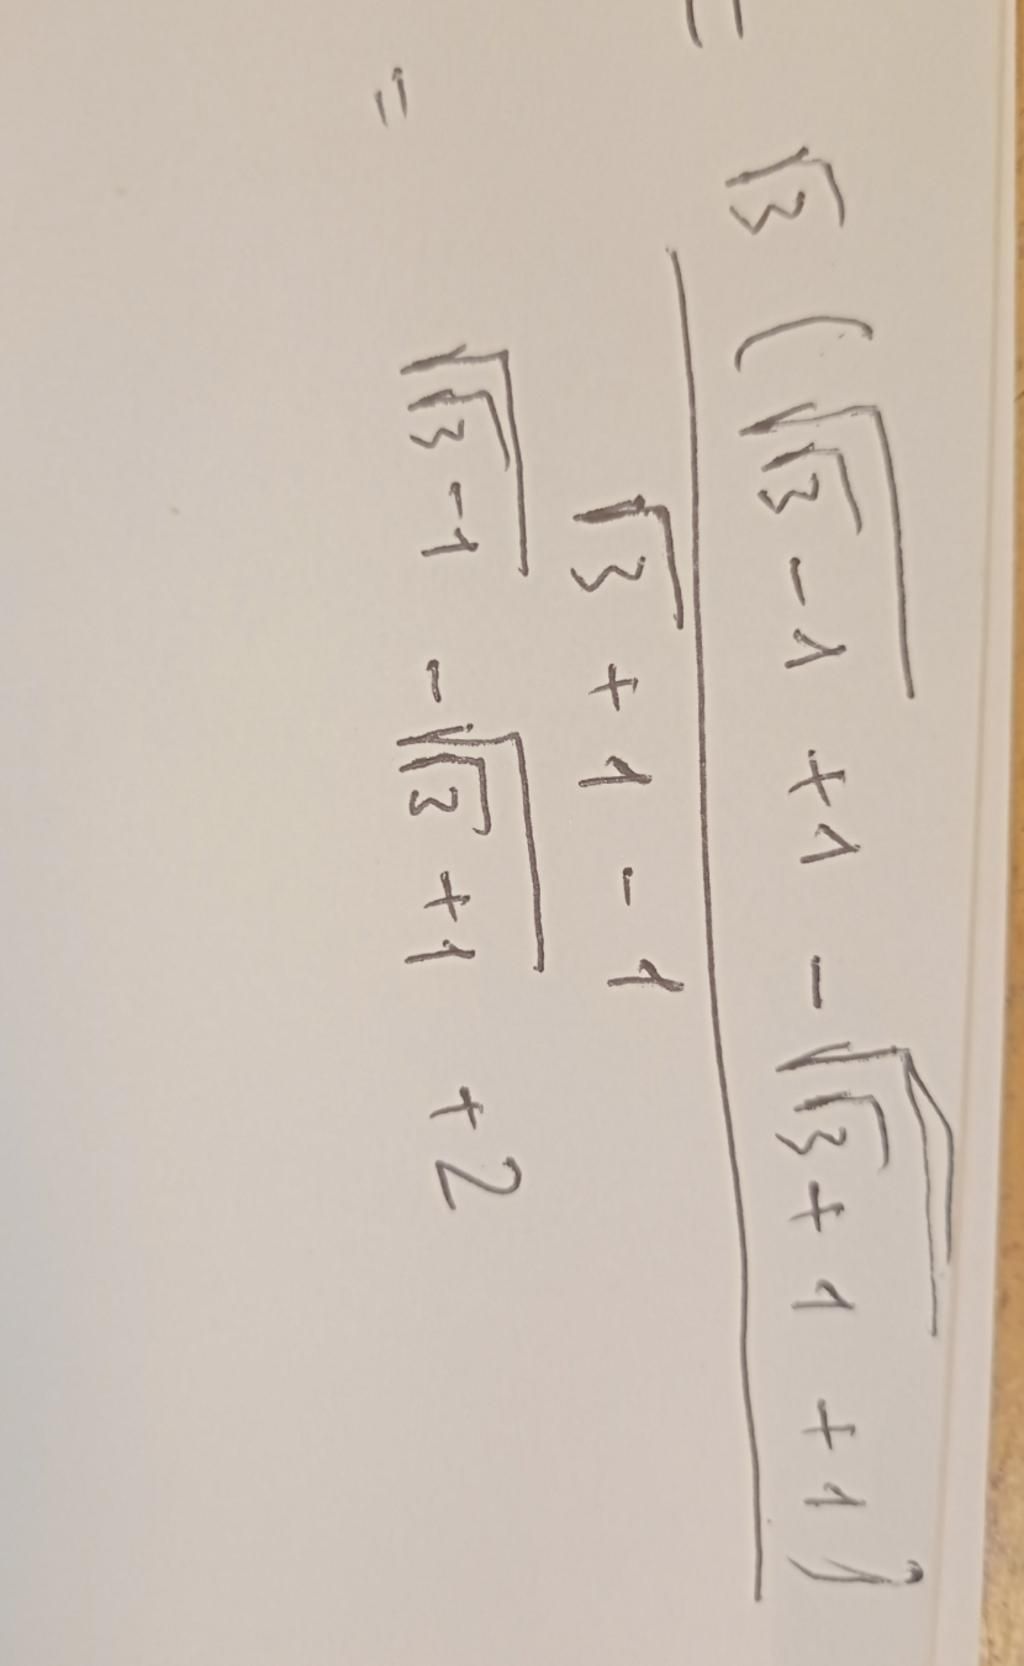 = √3 (√(√3 - 1) + 1 - √(√3 + 1) + 1)
√3 + 1 - 1
= √(√3 - 1) - √(√3 + 1) + 2